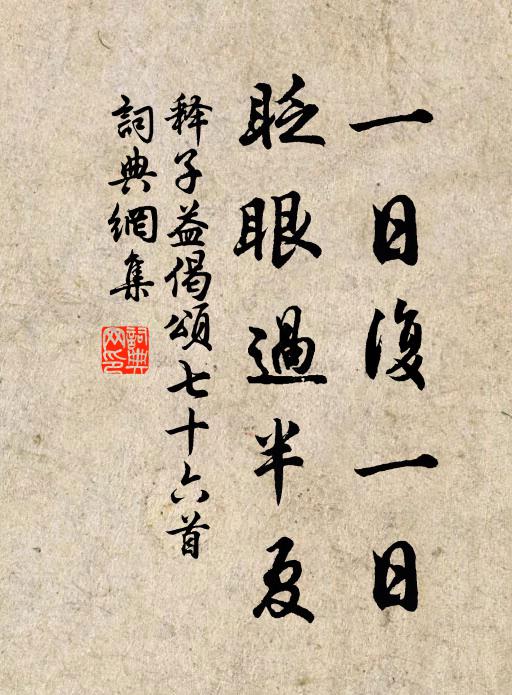 一日復一日
眨眼過半夏
释子益偈頌七十六首
詞典網集
詞典網印